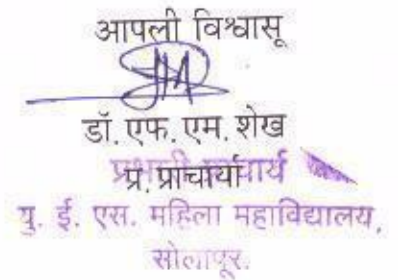 आपली विश्वासू
डॉ. एफ. एम. शेख
प्र. प्राचार्या
प्रभारी प्राचार्य
यु. ई. एस. महिला महाविद्यालय,
सोलापूर.